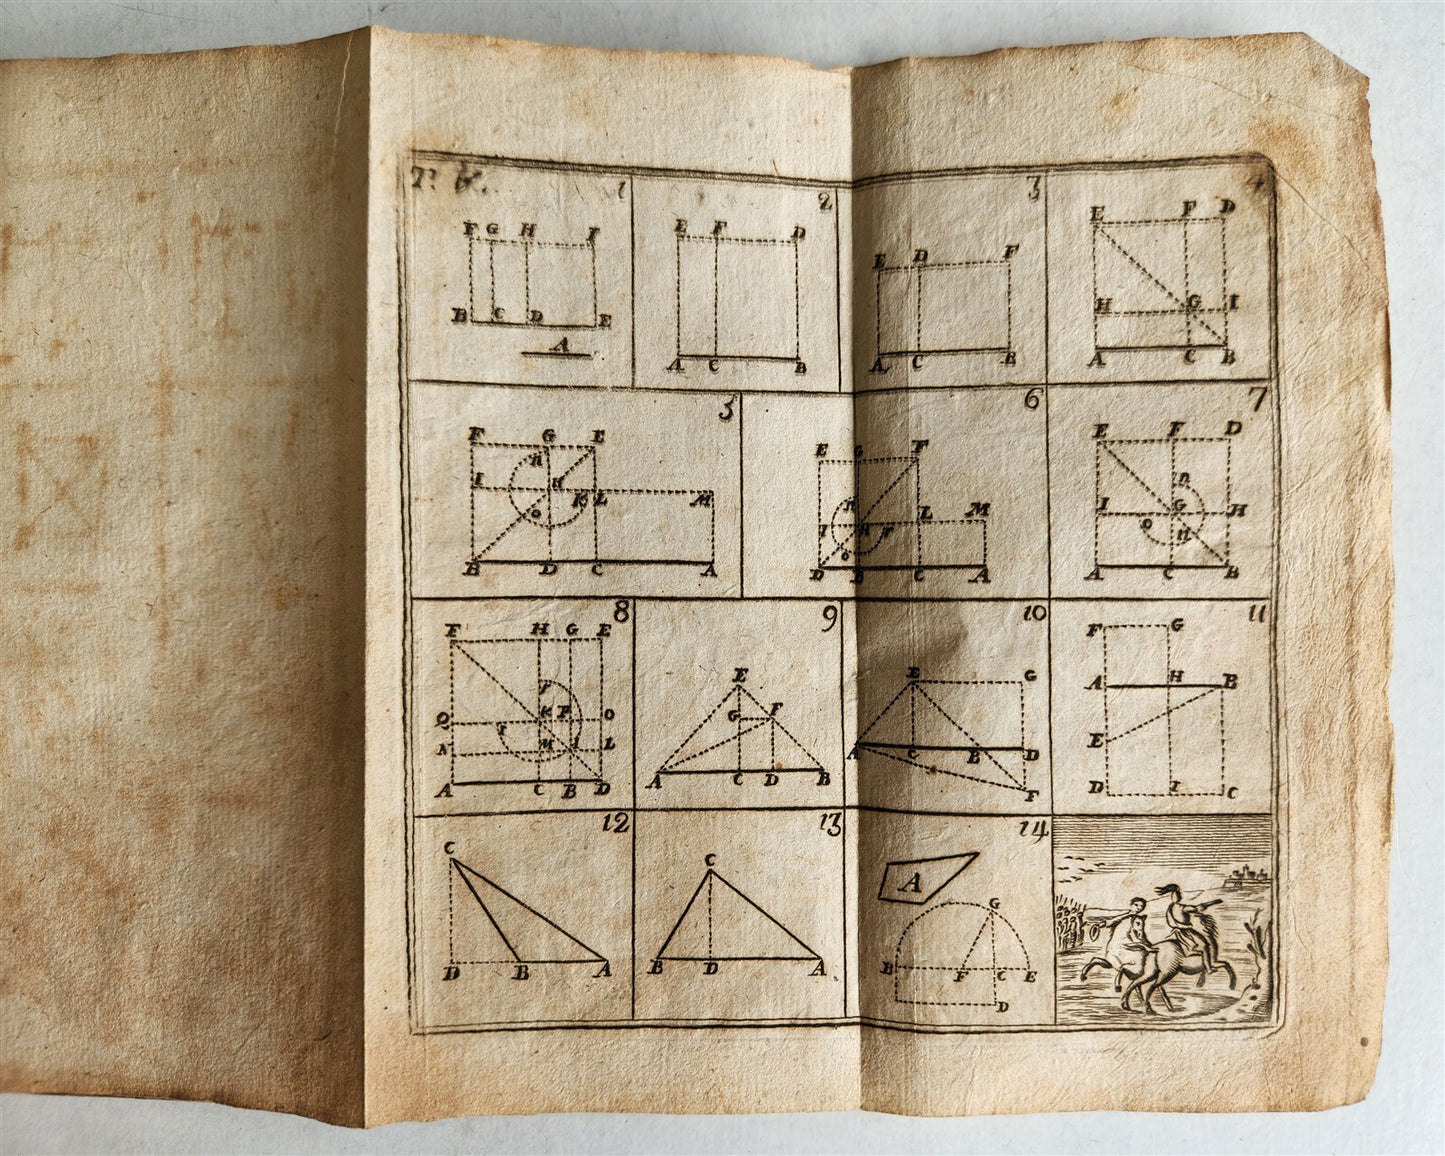 1
F G H I
B C D E
A
2
E F D
A C B
3
E D F
A C B
4
E F D
H G I
A C B
5
F G E
N
I H K L M
O
B D C A
6
E G F
N L M
I H P
O
D B C A
7
E F D
N
I G H
O M
A C B
8
F H G E
Q K P O
N M I L
A C B D
9
E
G F
A C D B
10
E G
A C B D
F
11
F G
A H B
E
D I C
12
C
D B A
13
C
B D A
14
A
G
B F C E
D